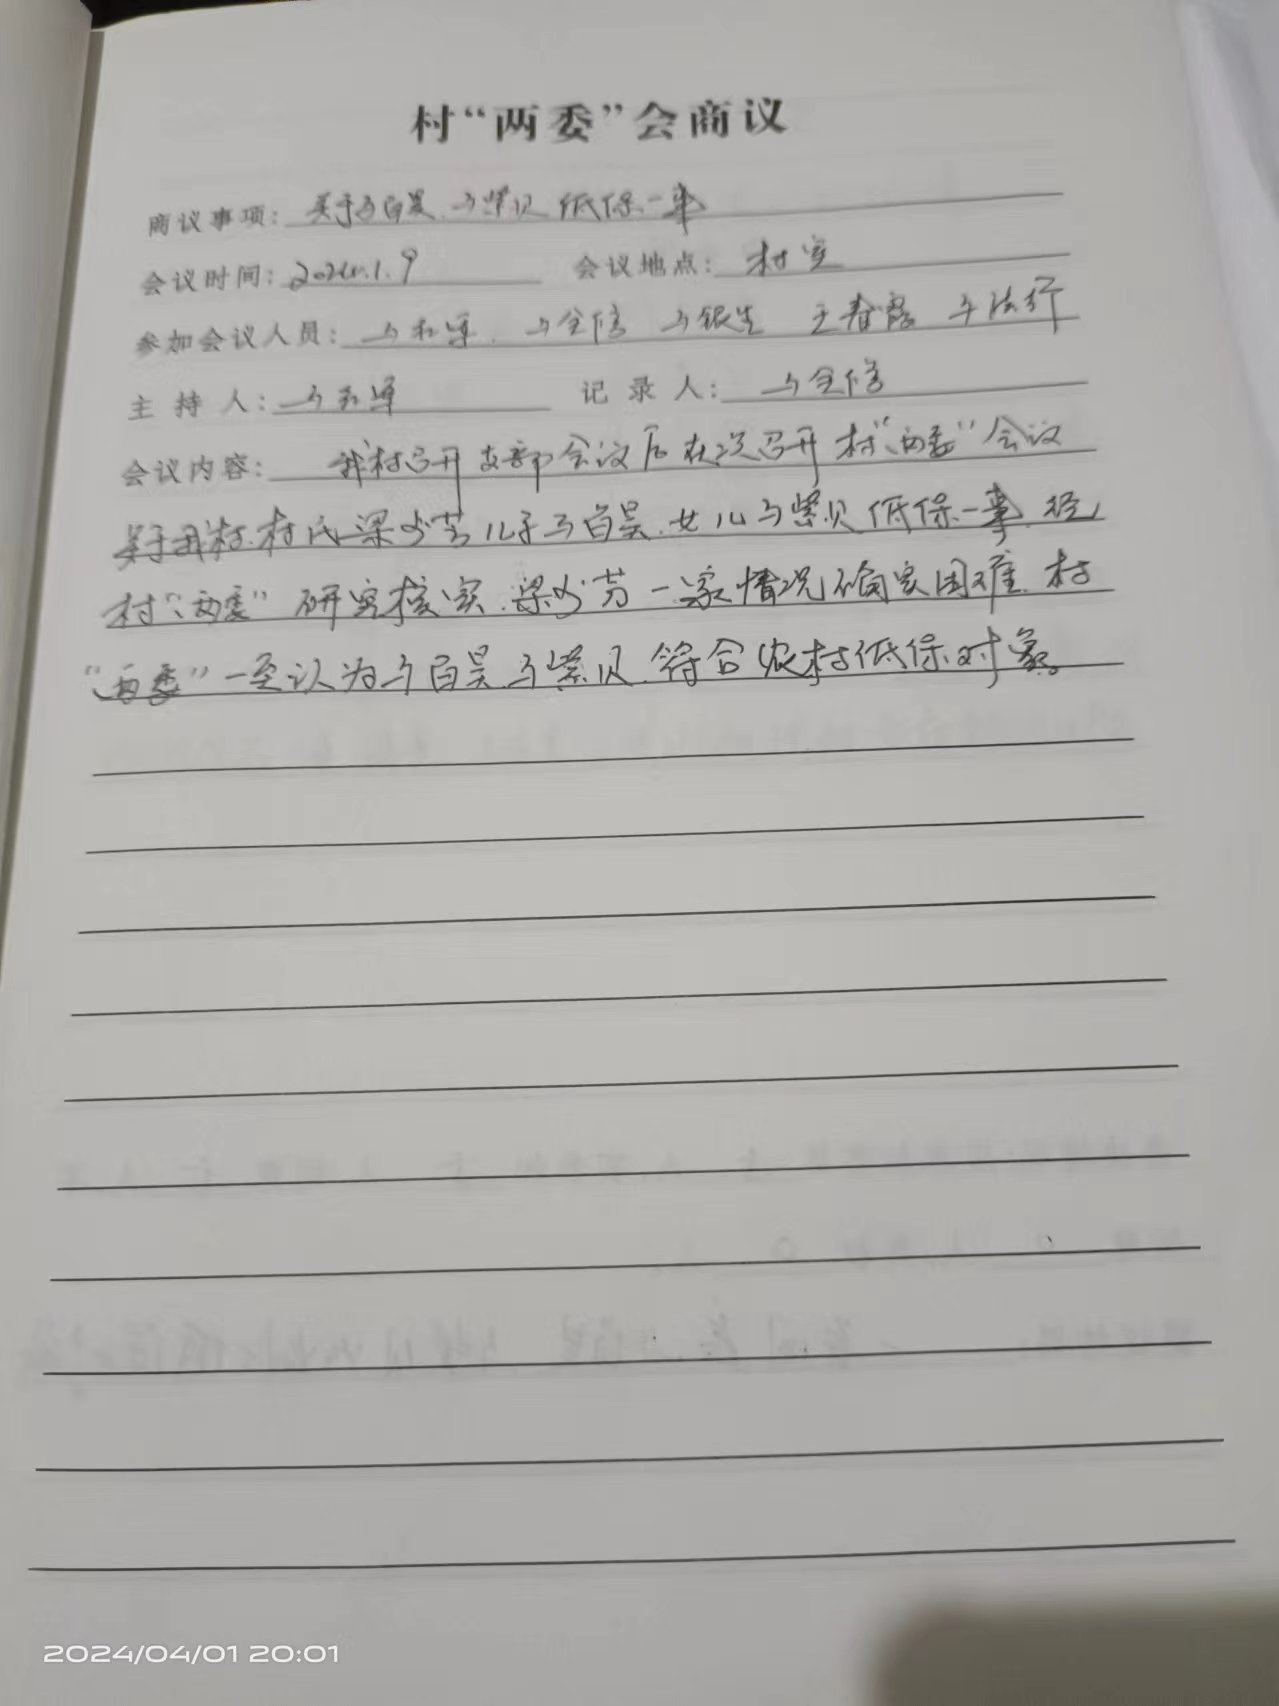 村“两委”会商议
商议事项：关于马百昊、马紫贝 低保一事
会议时间：2024.1.9 会议地点：村室
参加会议人员：马 马全信 马银生 王春霞
主持人：马 记录人：马全信
会议内容：我村召开支部会议后在次召开村“两委”会议
关于我村村民梁 儿子马百昊、女儿马紫贝低保一事，经
村“两委”研究核实，梁 一家情况确实困难，村
“两委”一至认为马百昊、马紫贝符合农村低保对象。
2024/04/01 20:01